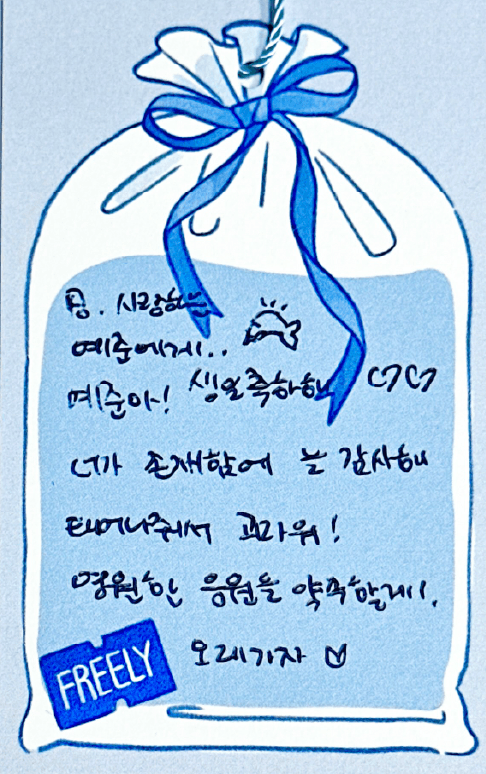 용. 사랑하는
예준에게..
예준아! 생일축하해 ♡♡
너가 존재함에 늘 감사해
태어나줘서 고마워!
영원한 응원을 약속할게!.
오래가자 ♡
FREELY